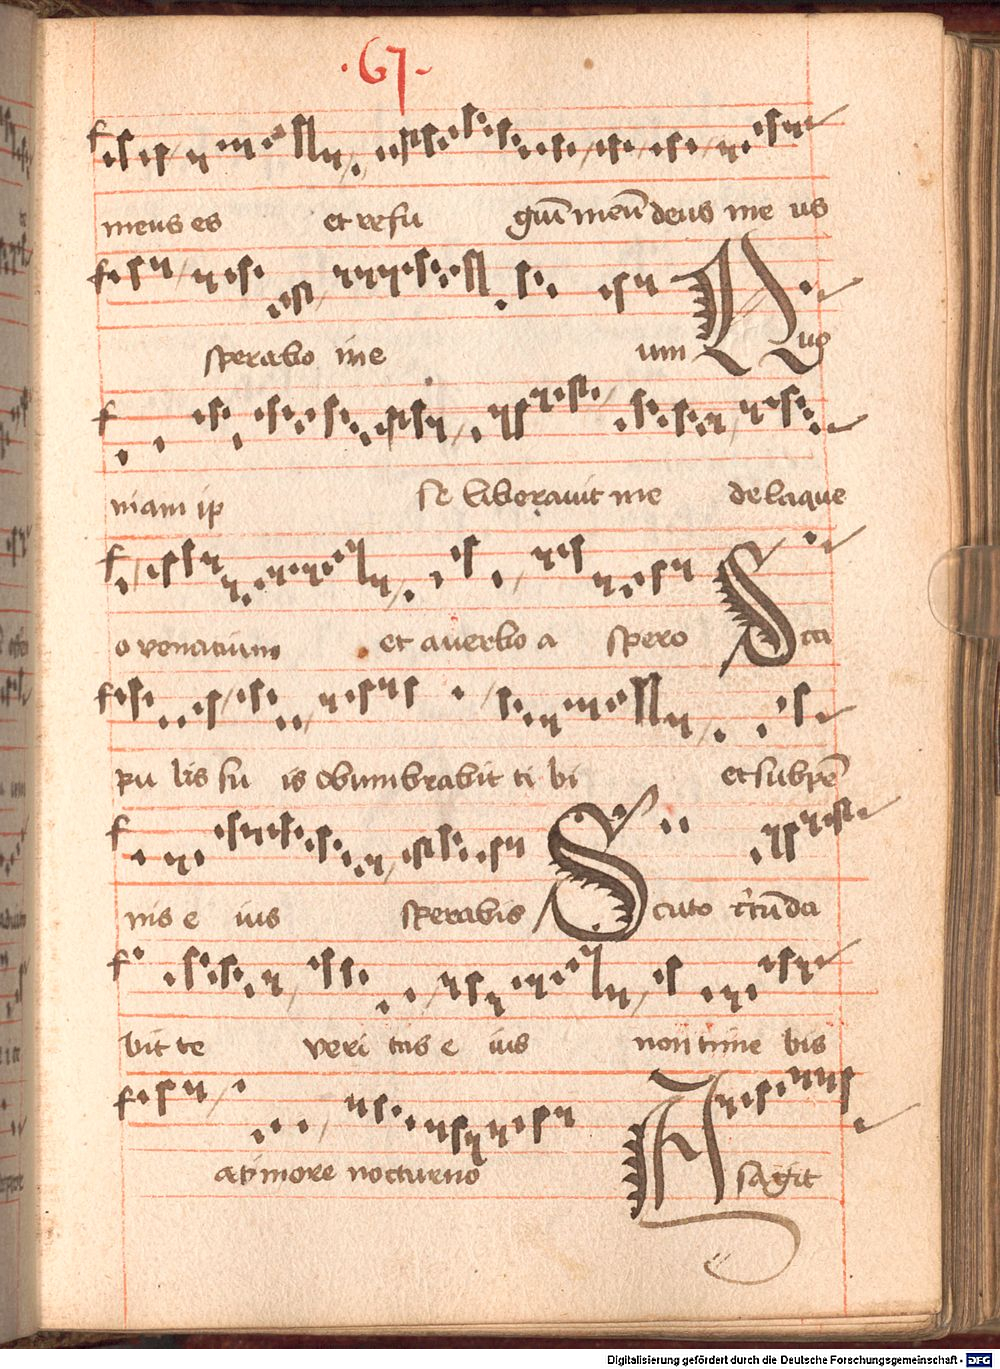 ·67·
meus es et refu giū meū deus me us
sperabo in e um Quo
niam ip se liberavit me de laque
o venatium et a verbo a spero Sca
pu lis su is obumbrabit ti bi et sub pē
nis e ius sperabis Scuto circūda
bit te veri tas e ius non time bis
a timore nocturno A sagit
Digitalisierung gefördert durch die Deutsche Forschungsgemeinschaft - DFG